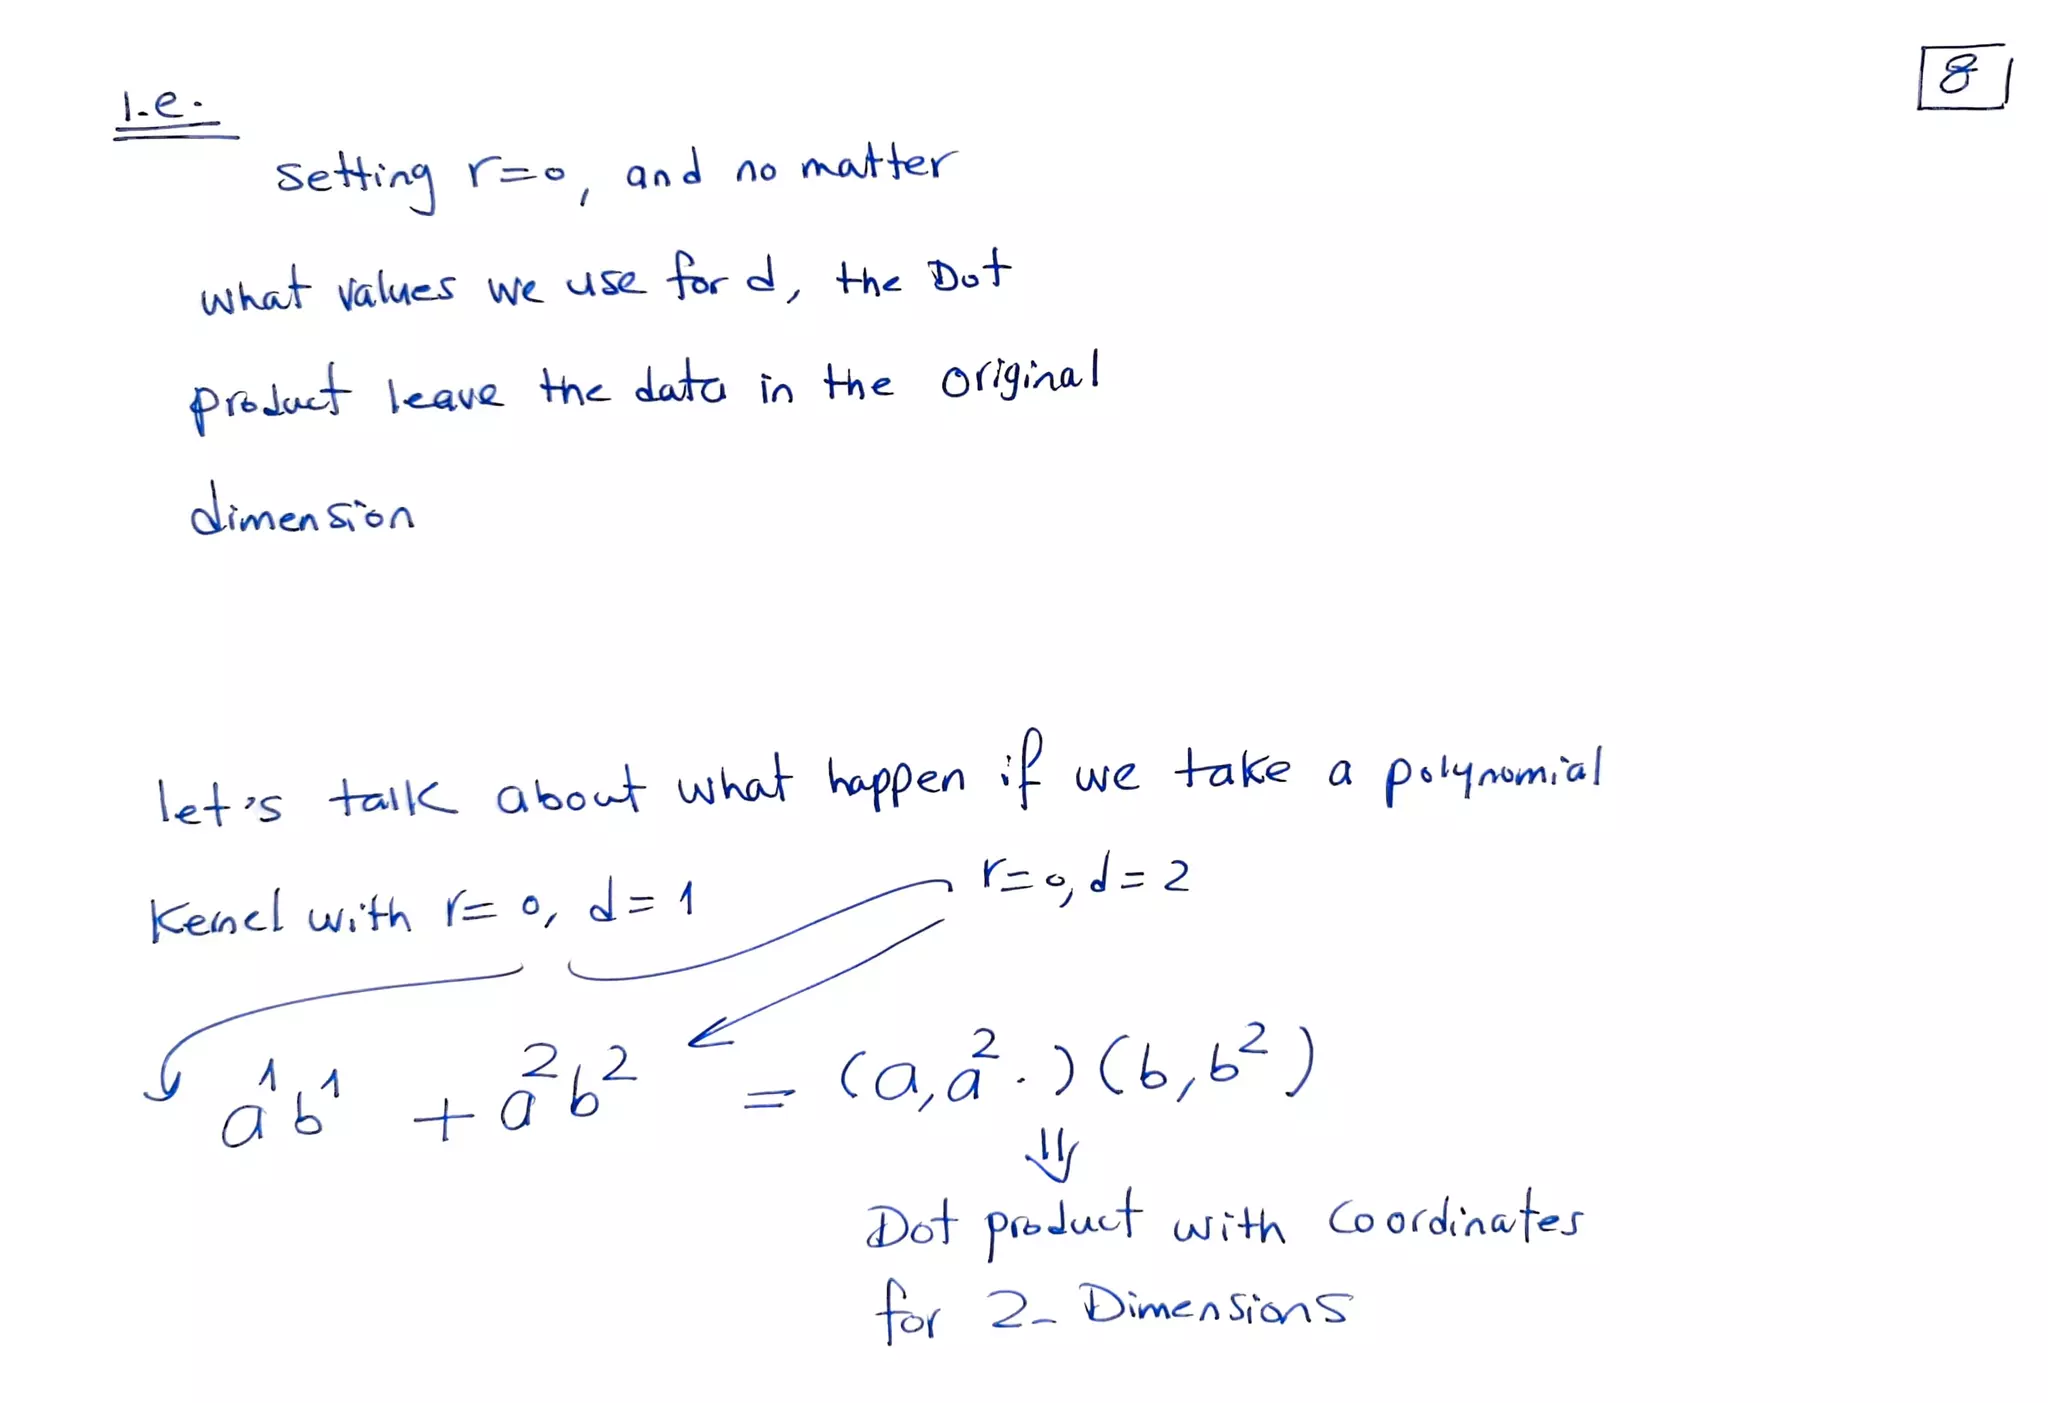 8
I.e.
setting r=0, and no matter
what values we use for d, the Dot
product leave the data in the original
dimension
let's talk about what happen if we take a polynomial
Kernel with r=0, d=1 r=0, d=2
a¹b¹ + a²b² = (a,a².)(b,b²)
⇓
Dot product with coordinates
for 2- Dimensions